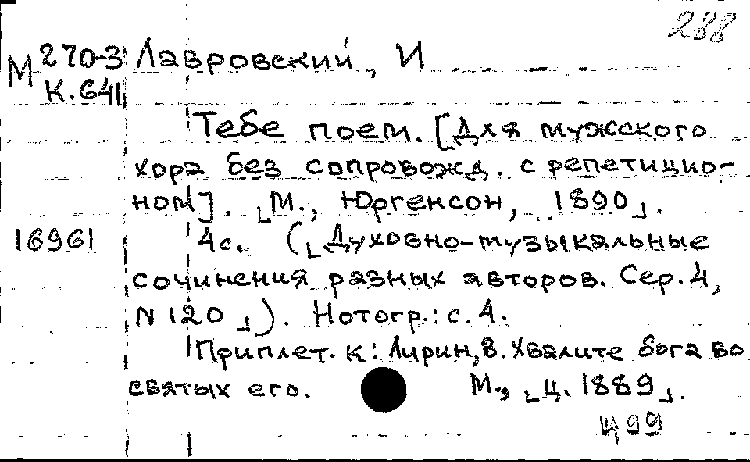 288
М 270-3 Лавровский, И
К.641
Тебе поем. [Для мужского
хора без сопровожд. с репетицио-
ном]. [М., Юргенсон, 1890].
16961 4с. ([Духовно-музыкальные
сочинения разных авторов. Сер.4,
N 120]). Нотогр.: с.4.
Приплет. к: Лирин, В. Хвалите бога во
святых его. М., [ц. 1889].
Ц99